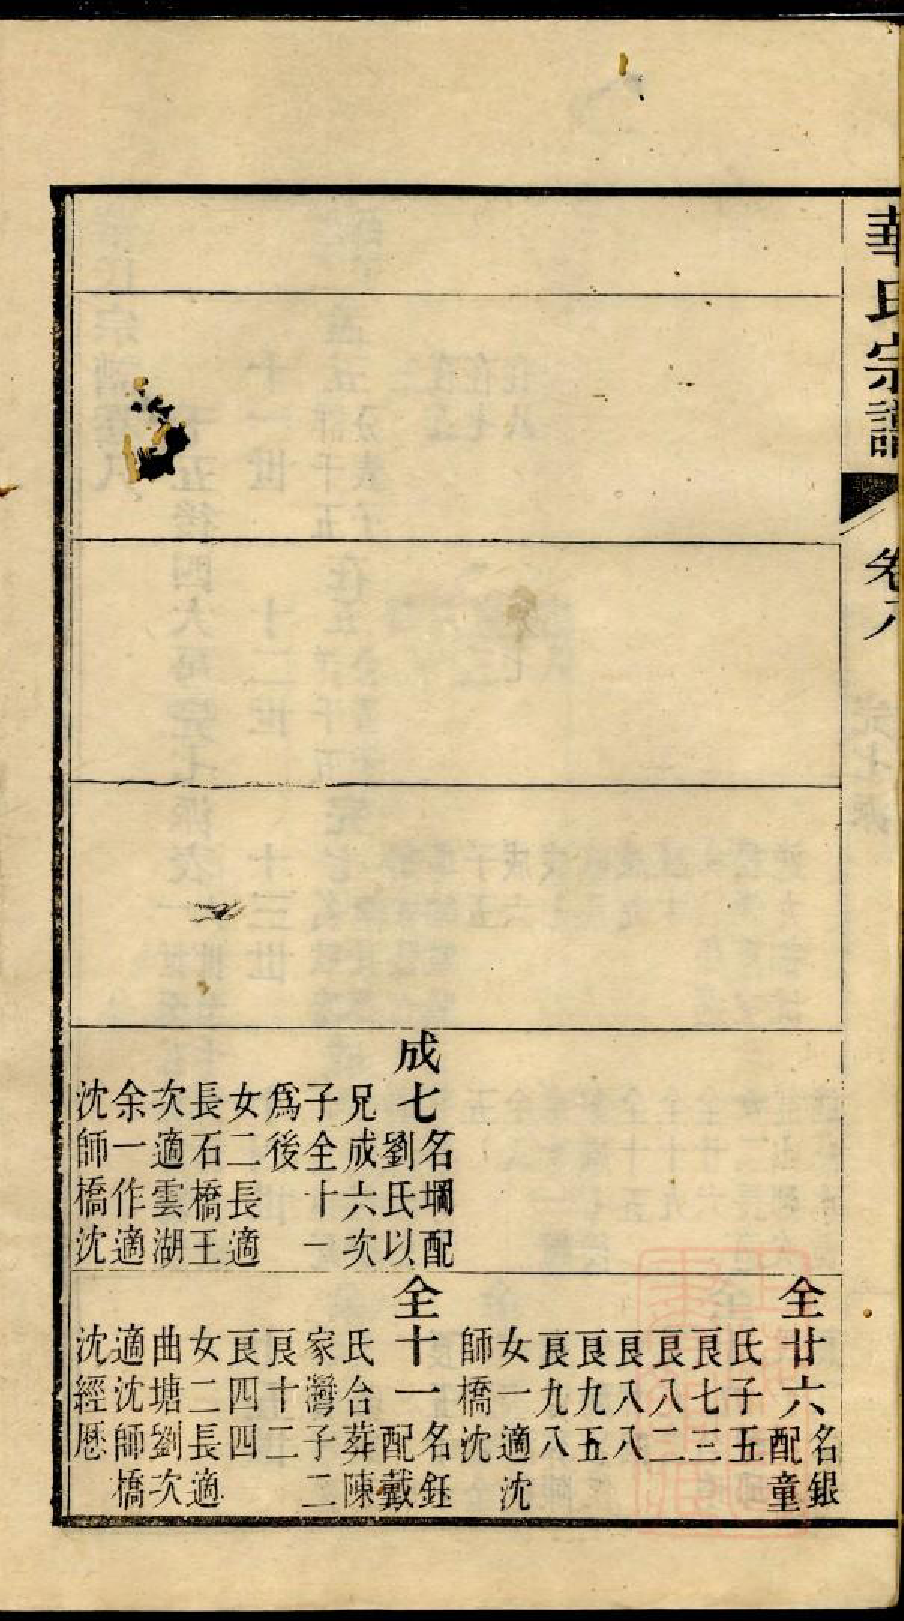 華氏宗譜
卷八
成七
名堈配
劉氏以
兄成六次
子全十一
爲後
女二長適
長石橋王
次適雲湖
余一作適
沈師橋沈
全廿六
名銀
配童
氏子五
良七三
良八二
良八八
良九五
良九八
女一適沈
師橋沈
全十一
名鈺
配戴
氏合葬陳
家灣子二
良十二
良四四
女二長適
曲塘劉次
適沈師橋
沈經厯